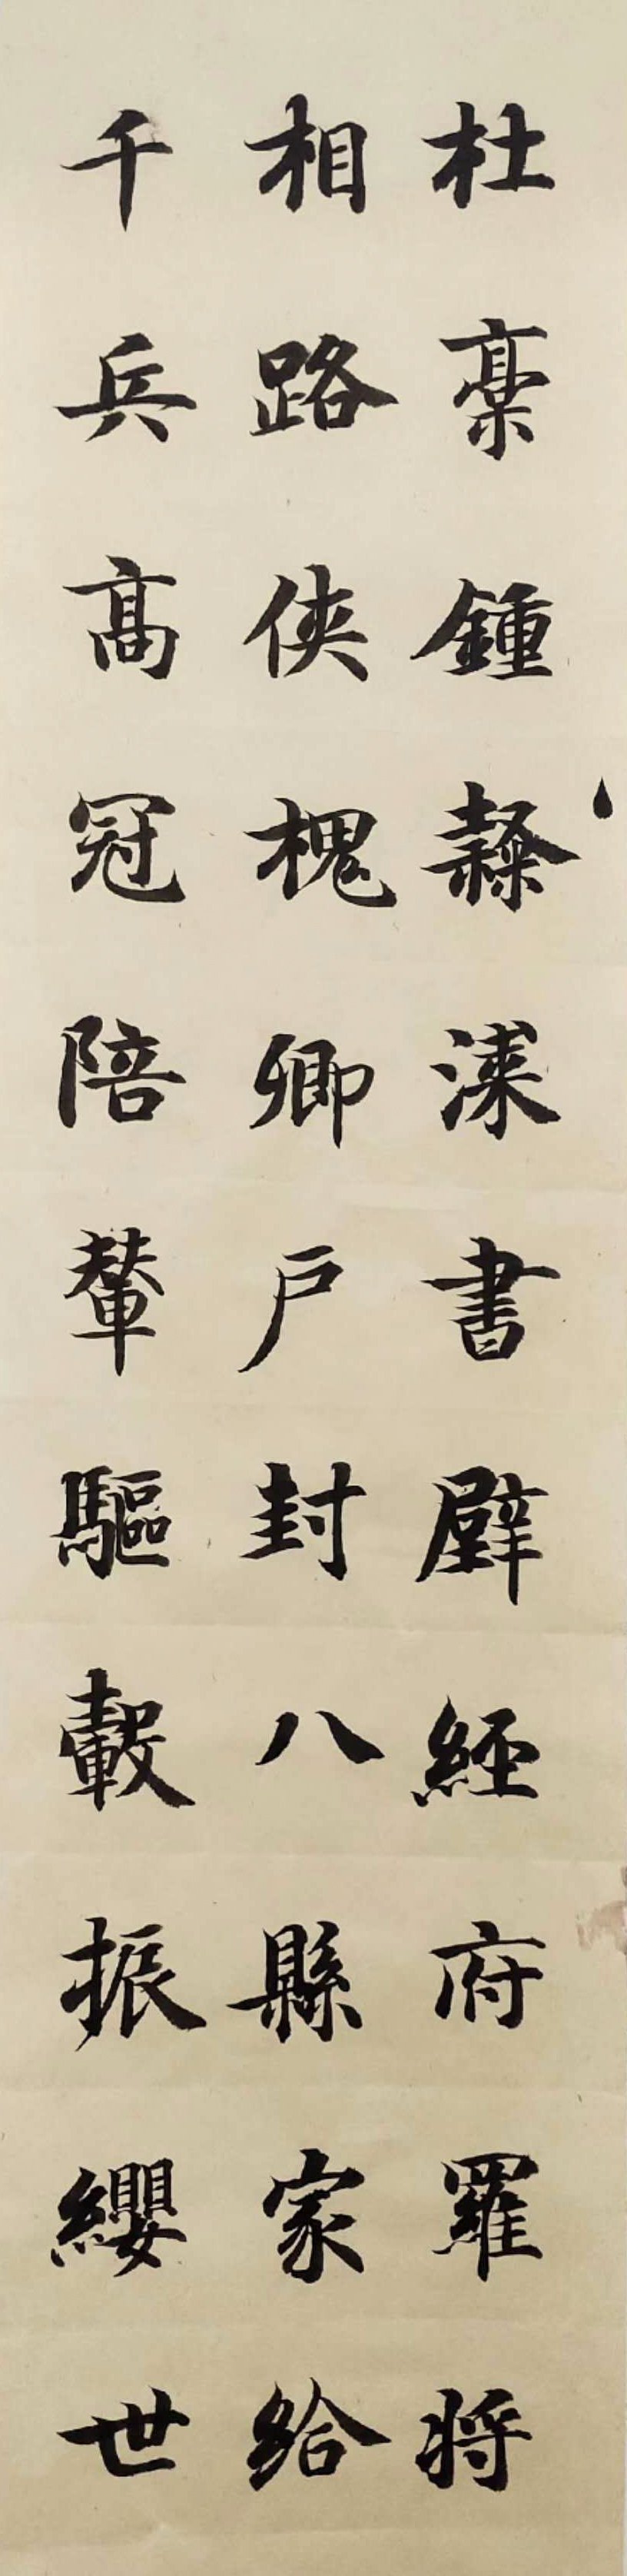 杜稾鍾隸漆書壁經府羅将
相路俠槐卿户封八縣家給
千兵高冠陪輦驅轂振纓世